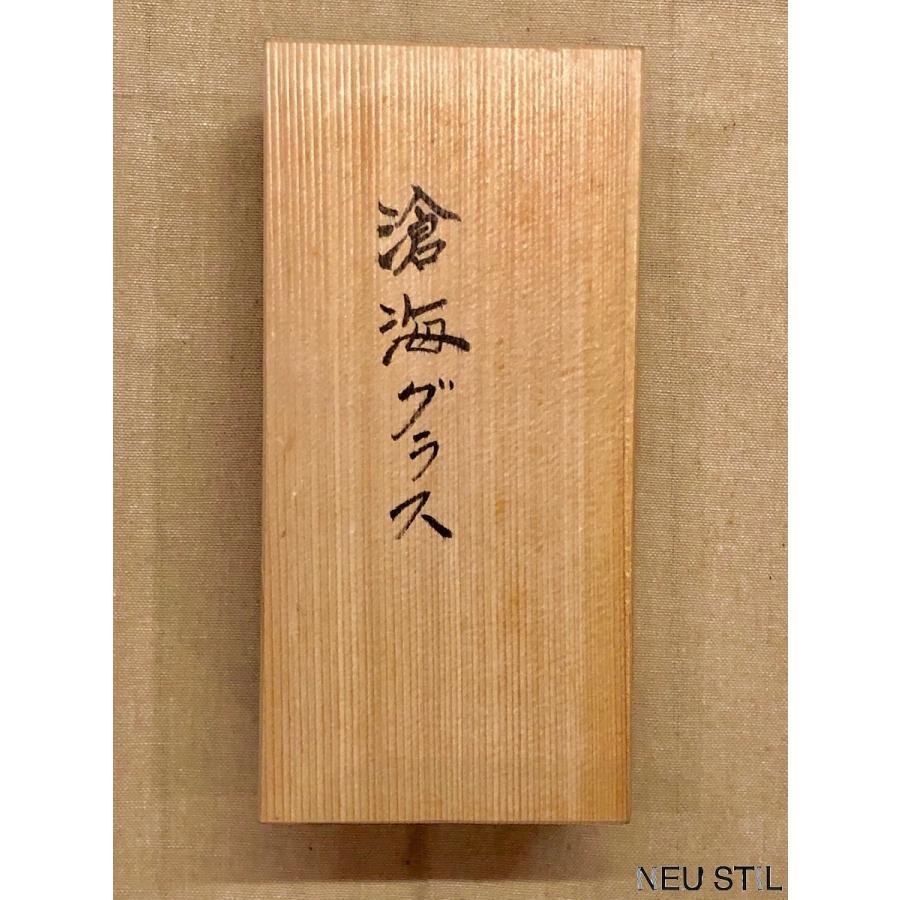 滄海グラス
NEU STIL